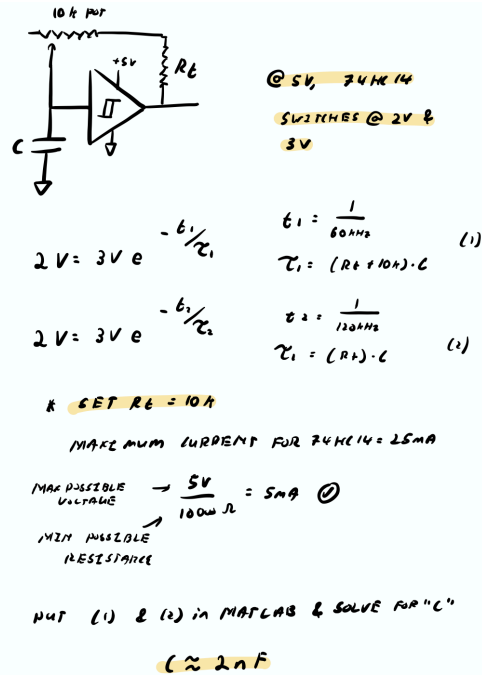 10k POT
+5V
Rt
C
@ 5V, 74HC14
SWITCHES @ 2V &
3V
2V = 3V e^-t1/τ1
t1 = 1/60kHz
τ1 = (Rt + 10k) · C
(1)
2V = 3V e^-t2/τ2
t2 = 1/120kHz
τ1 = (Rt) · C
(2)
* SET Rt = 10k
MAXIMUM CURRENT FOR 74HC14 = 25mA
MAX POSSIBLE VOLTAGE → 5V/1000 Ω = 5mA ✓
MIN POSSIBLE
RESISTANCE
PUT (1) & (2) in MATLAB & SOLVE FOR "C"
C ≈ 2nF